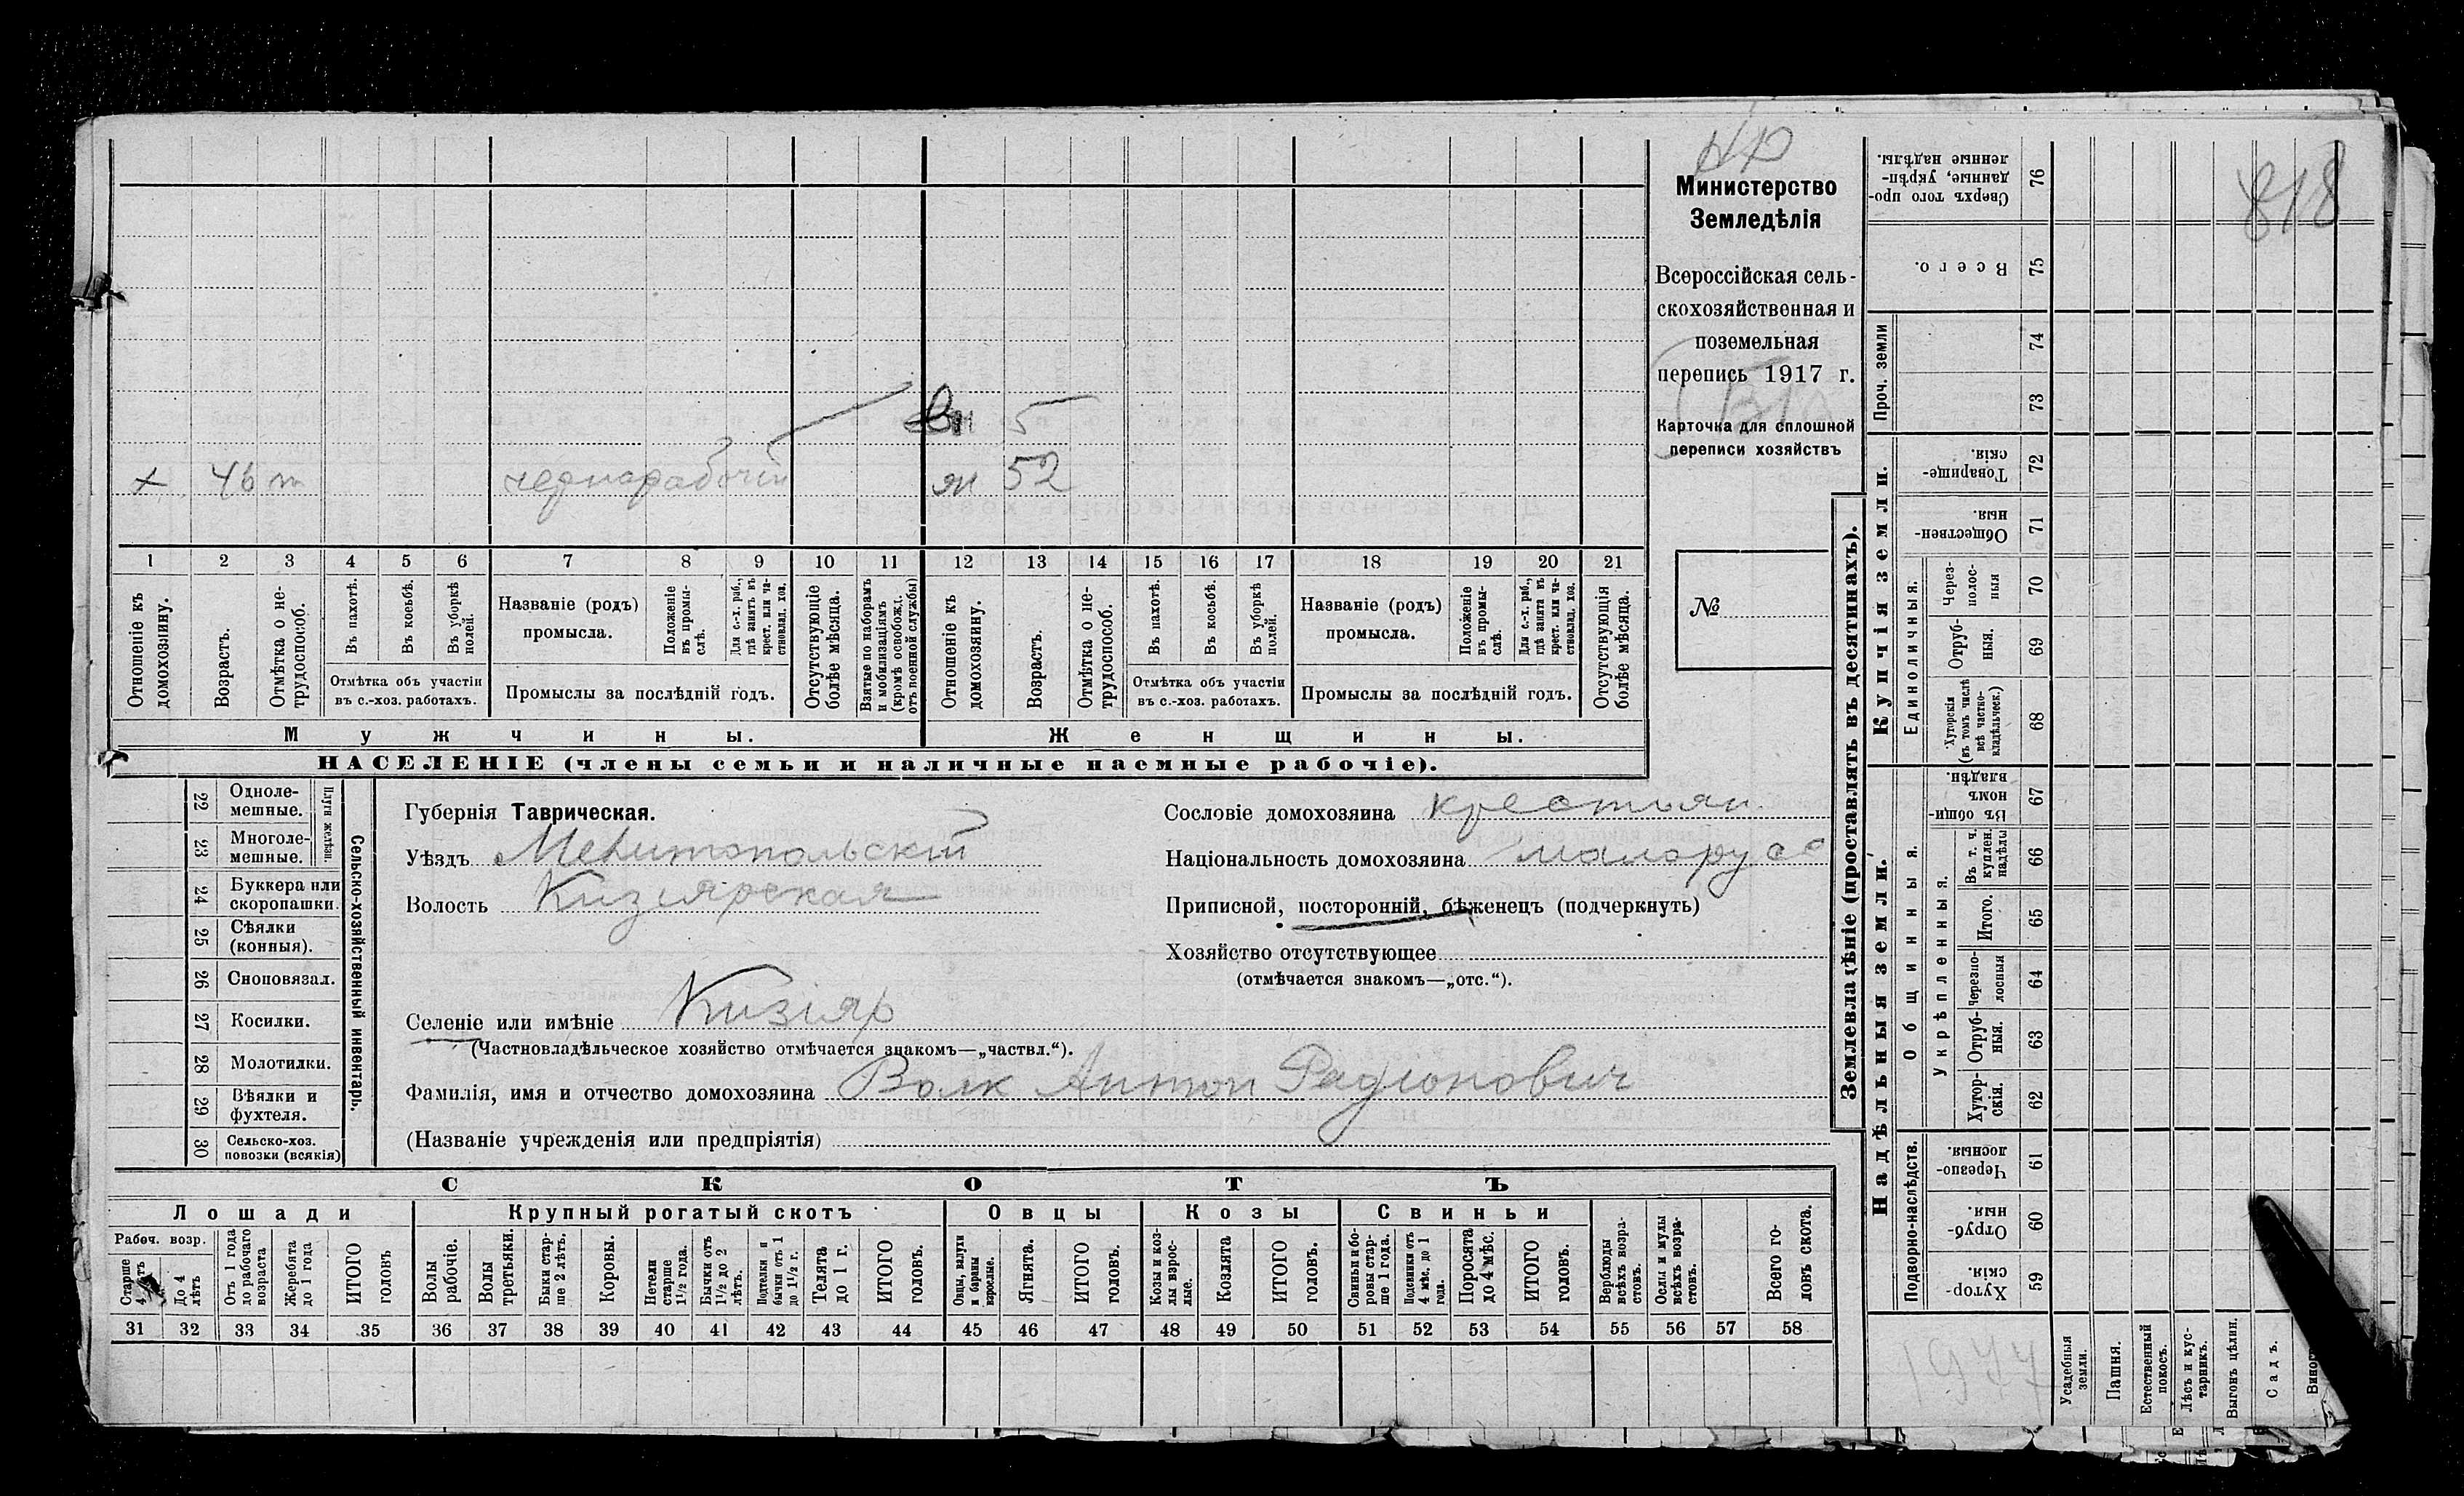 НР
818
Министерство
Земледѣлія
Всероссійская сель-
скохозяйственная и
поземельная
перепись 1917 г.
Карточка для сплошной
переписи хозяйствъ
№
вн 5
х 46 т чернорабочій ж 52
1 2 3 4 5 6 7 8 9 10 11 12 13 14 15 16 17 18 19 20 21
Отношеніе къ домохозяину.
Возрастъ.
Отмѣтка о не-трудоспособ.
Въ пахотѣ.
Въ косьбѣ.
Въ уборкѣ полей.
Отмѣтка объ участіи
въ с.-хоз. работахъ.
Названіе (родъ)
промысла.
Положеніе въ промы-слѣ.
Для с.-х. раб., гдѣ занятъ въ крест. или ча-стновлад. хоз.
Промыслы за послѣдній годъ.
Отсутствующіе болѣе мѣсяца.
Взятые по наборамъ и мобилизаціямъ (кромѣ освобожд. отъ военной службы)
Отношеніе къ домохозяину.
Возрастъ.
Отмѣтка о не-трудоспособ.
Въ пахотѣ.
Въ косьбѣ.
Въ уборкѣ полей.
Отмѣтка объ участіи
въ с.-хоз. работахъ.
Названіе (родъ)
промысла.
Положеніе въ промы-слѣ.
Для с.-х. раб., гдѣ занята въ крест. или ча-стновлад. хоз.
Промыслы за послѣдній годъ.
Отсутствующія болѣе мѣсяца.
Мужчины. Женщины.
НАСЕЛЕНІЕ (члены семьи и наличные наемные рабочіе).
22 Одноле-мешные.
23 Многоле-мешные.
Плуги желѣзн.
24 Буккера или скоропашки.
25 Сѣялки (конныя).
26 Сноповязал.
27 Косилки.
28 Молотилки.
29 Вѣялки и фухтеля.
30 Сельско-хоз. повозки (всякія)
Сельско-хозяйственный инвентарь.
Губернія Таврическая.
Уѣздъ Мелитопольскій
Волость Кизіярская
Селеніе или имѣніе Кизіяр
(Частновладѣльческое хозяйство отмѣчается знакомъ—„частвл.“).
Фамилія, имя и отчество домохозяина Волк Антон Радіонович
(Названіе учрежденія или предпріятія)
Сословіе домохозяина крестьян.
Національность домохозяина малорусс
Приписной, посторонній, бѣженецъ (подчеркнуть)
Хозяйство отсутствующее
(отмѣчается знакомъ—„отс.“).
СКОТЪ
Лошади Крупный рогатый скотъ Овцы Козы Свиньи
Рабоч. возр.
Старше 4 лѣтъ
До 4 лѣтъ
Отъ 1 года до рабочаго возраста
Жеребята до 1 года
ИТОГО головъ
Волы рабочіе.
Волы третьяки.
Быки стар-ше 2 лѣтъ.
Коровы.
Нетели старше 1½ года.
Бычки отъ 1½ до 2 лѣтъ.
Подтелки и бычки отъ 1 до 1½ г.
Телята до 1 г.
ИТОГО головъ.
Овцы, валухи и бараны взрослые.
Ягнята.
ИТОГО головъ.
Козы и коз-лы взрос-лые.
Козлята
ИТОГО головъ.
Свиньи и бо-ровы стар-ше 1 года.
Подсвинки отъ 4 мѣс. до 1 года.
Поросята до 4 мѣс.
ИТОГО головъ.
Верблюды всѣхъ возра-стовъ.
Ослы и мулы всѣхъ возра-стовъ.
Всего го-ловъ скота.
31 32 33 34 35 36 37 38 39 40 41 42 43 44 45 46 47 48 49 50 51 52 53 54 55 56 57 58
Землевладѣніе (проставлять въ десятинахъ).
Купчія земли.
Проч. земли
Надѣльныя земли.
Единоличныя.
Общинныя.
Укрѣпленныя.
Подворно-наслѣдств.
76 Сверхъ того про-данные, укрѣп-ленные надѣлы.
75 Всего.
74
73
72 Товарище-скія.
71 Обществен-ныя.
70 Через-полос-ныя
69 Отруб-ныя.
68 Хуторскія (въ томъ числѣ всѣ частно-владѣльческ.)
67 Въ общин-номъ владѣн.
66 Въ т. ч. куплен. надѣлы
65 Итого.
64 Черезпо-лосныя
63 Отруб-ныя.
62 Хутор-скія.
61 Черезпо-лосныя
60 Отруб-ныя.
59 Хутор-скія.
1977
Усадебныя земли.
Пашня.
Естественный покосъ.
Лѣсъ и кус-тарникъ.
Выгонъ цѣлин.
Садъ.